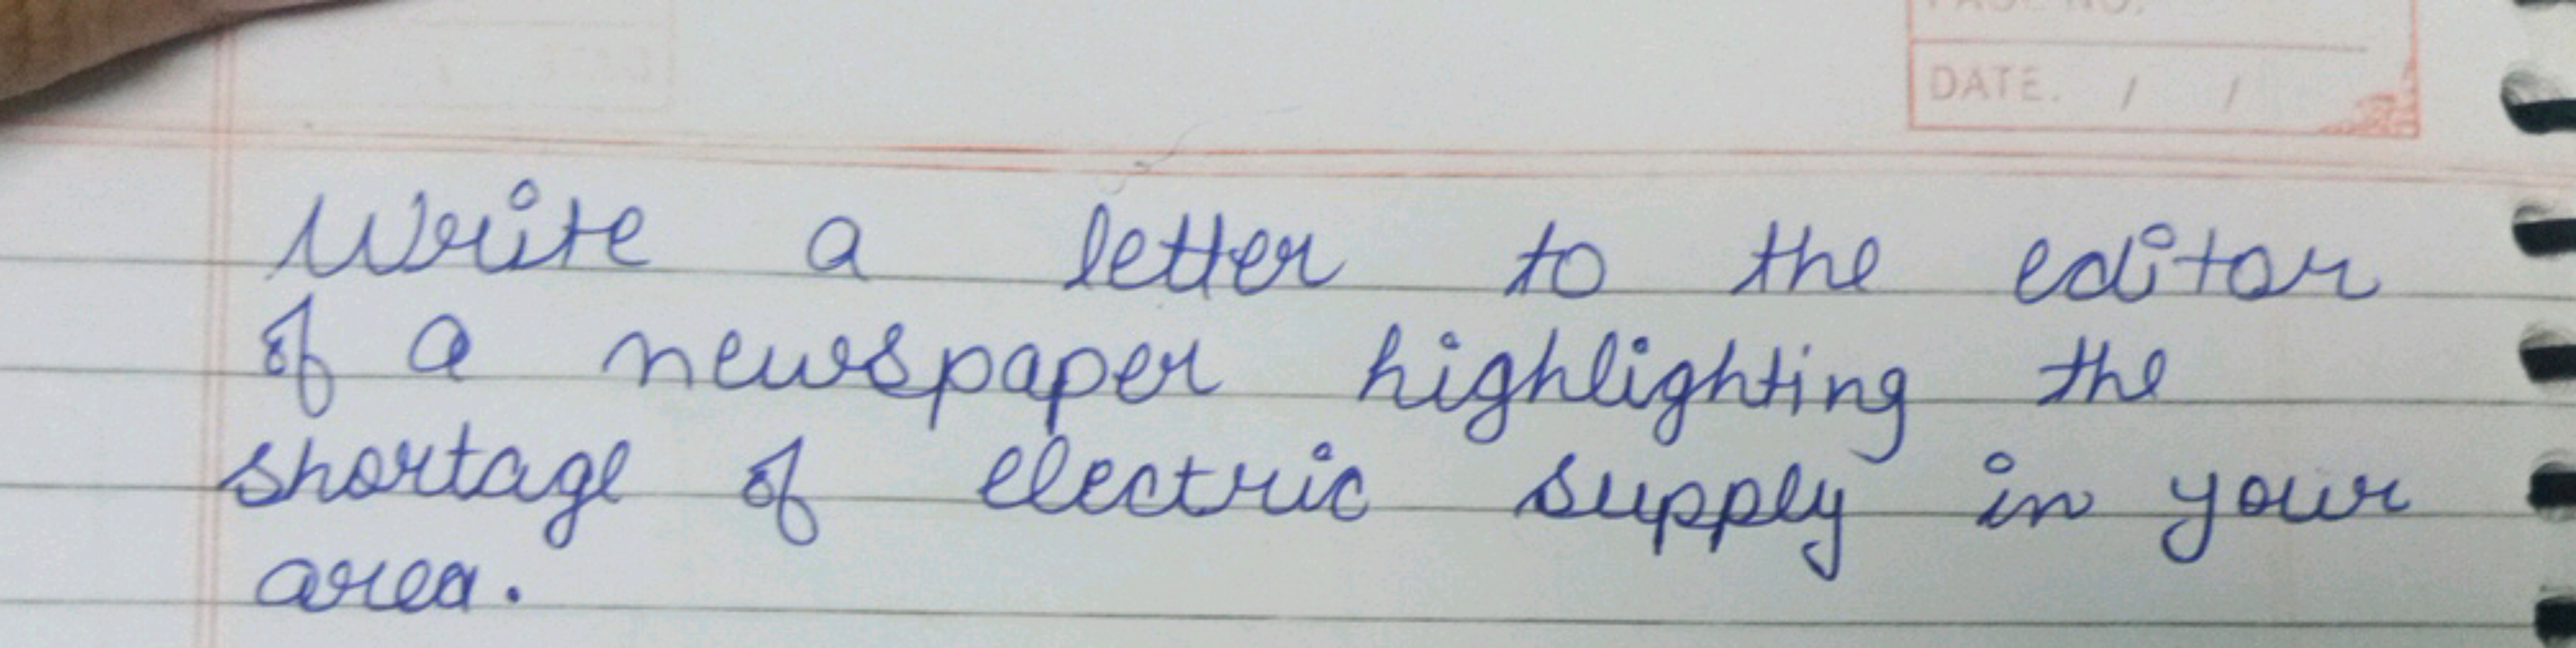 PAGE NO.
DATE. / /
Write a letter to the editor
of a newspaper highlighting the
shortage of electric supply in your
area.